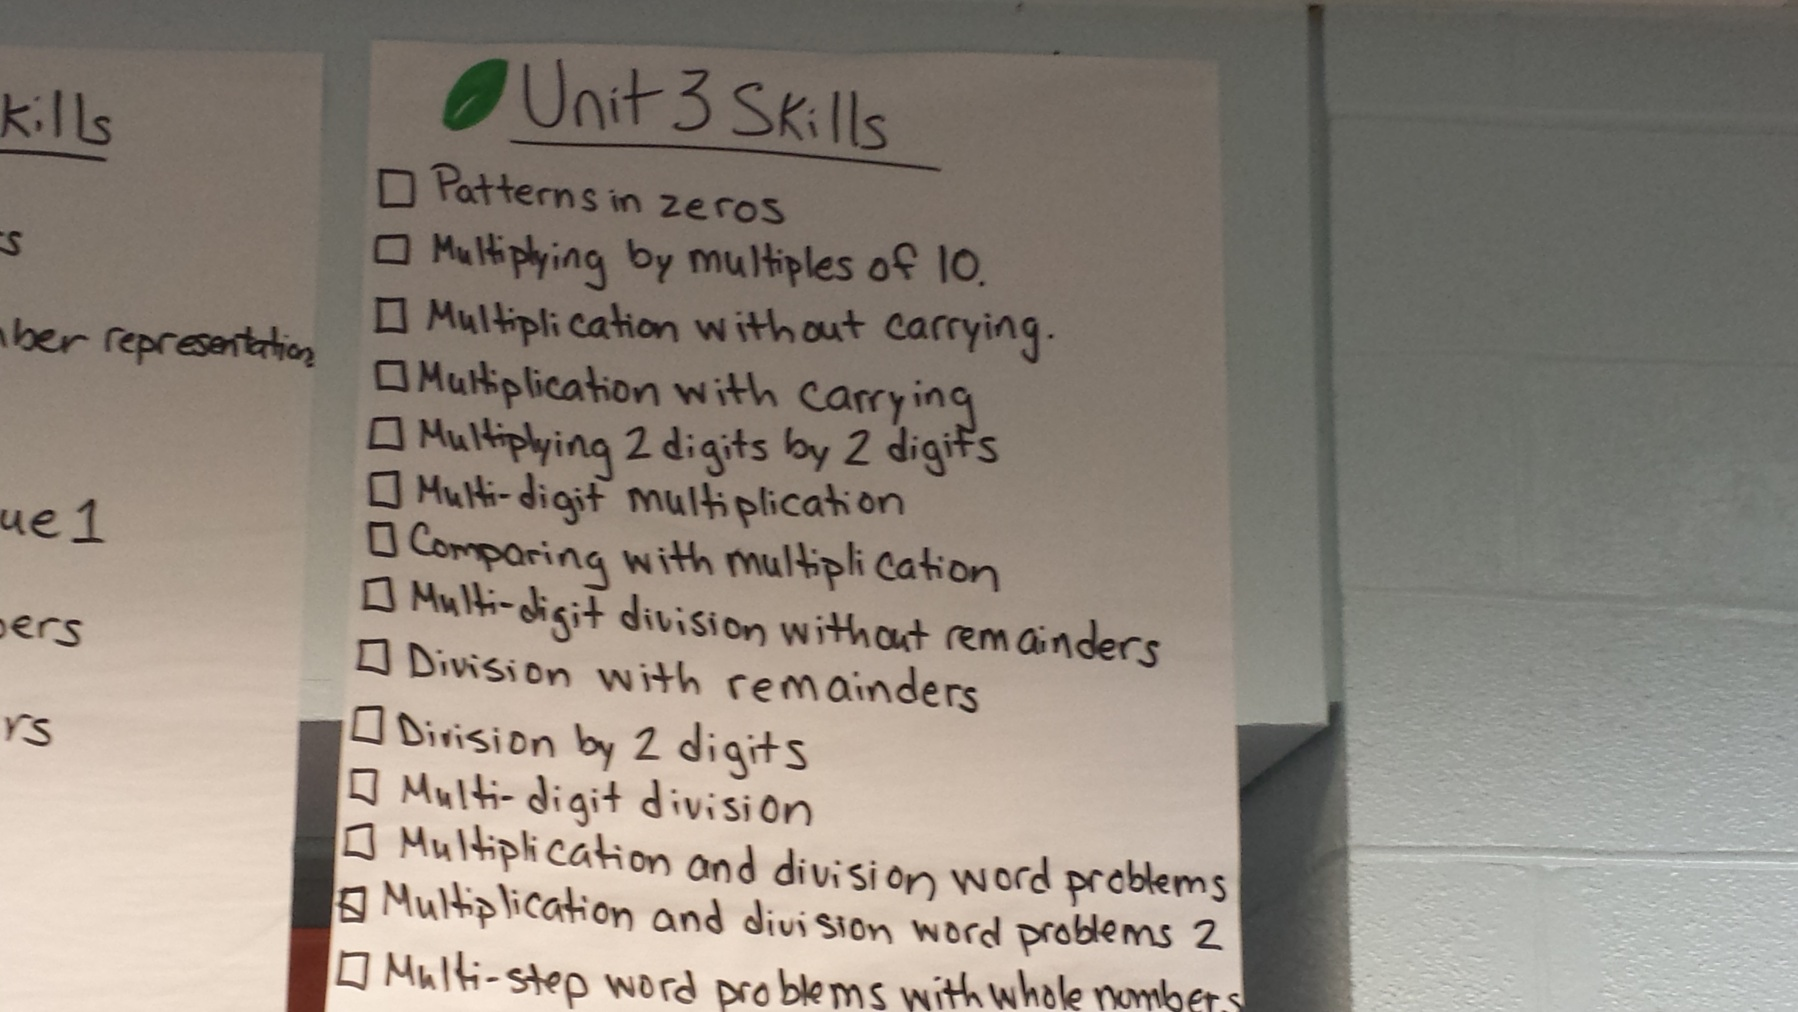 kills
s
ber representation
ue 1
ers
rs
Unit 3 Skills
Patterns in zeros
Multiplying by multiples of 10.
Multiplication without carrying.
Multiplication with carrying
Multiplying 2 digits by 2 digits
Multi-digit multiplication
Comparing with multiplication
Multi-digit division without remainders
Division with remainders
Division by 2 digits
Multi-digit division
Multiplication and division word problems
Multiplication and division word problems 2
Multi-step word problems with whole numbers